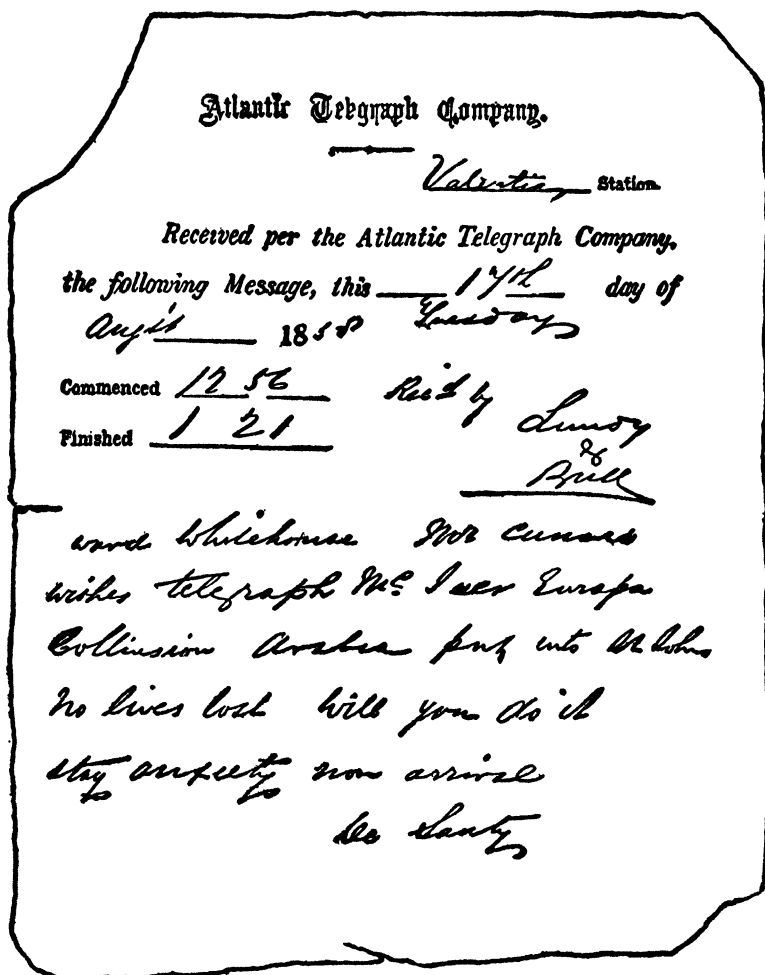 Atlantic Telegraph Company.
Valentia, Station.
Received per the Atlantic Telegraph Company,
the following Message, this 17th day of
Augst 1858 Tuesday
Commenced 12 56 Rec'd by
Finished 1 21 Lundy
&
Bull
ward Whitehouse Mr Cunard
wishes telegraph Mc Iver Europa
Collinsion Arabia put into St Johns
No lives lost will you do it
stay anxiety non arrival
De Sauty